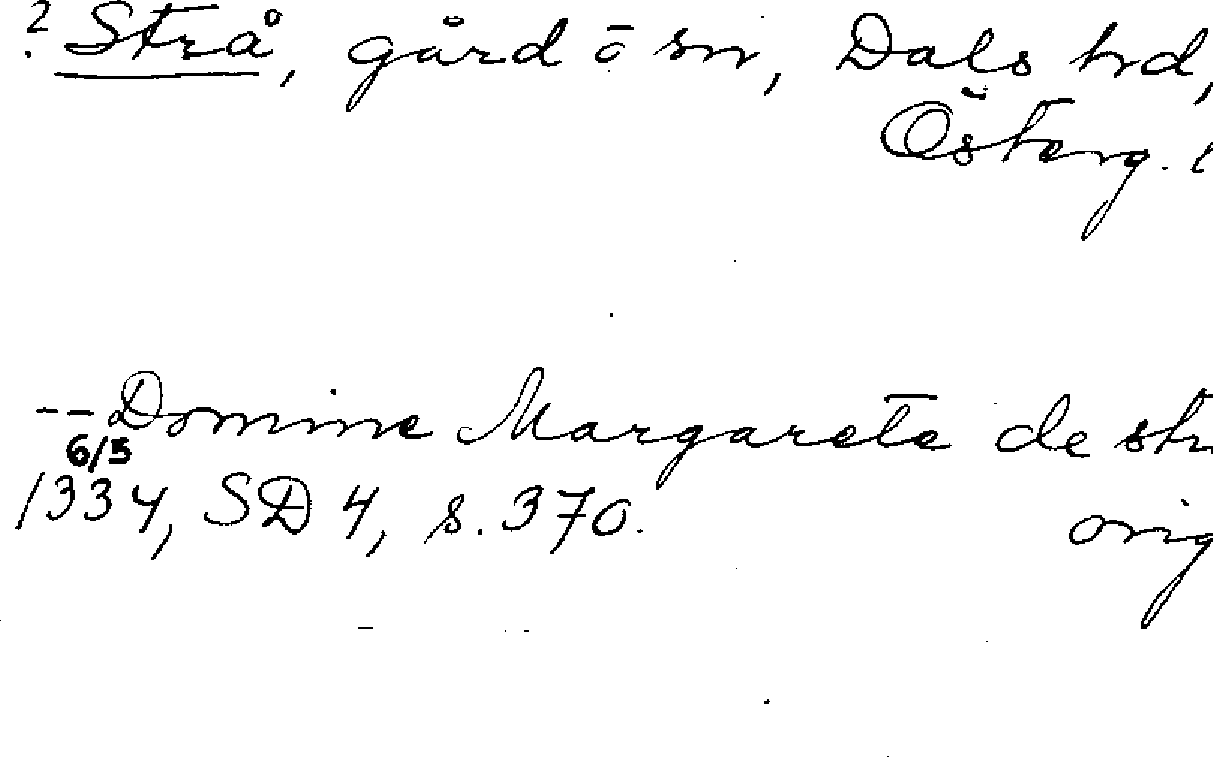 ? Strå, gård o sn, Dals hd,
Österg. l
-- Domine Margarete de str
6/5
1334, SD 4, s. 370. orig